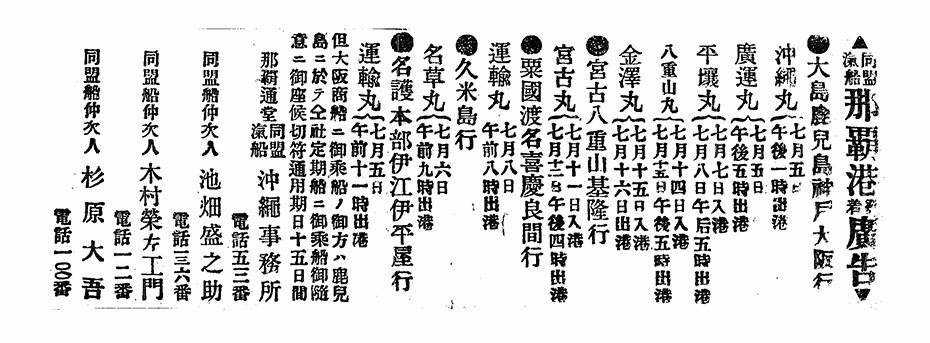 ▲同盟汽船那覇港発着廣告▼
●大島鹿兒島神戸大阪行
沖繩丸 七月五日午後一時出港
廣運丸 七月五日午後五時出港
平壤丸 七月七日入港 七月八日午后五時出港
八重山丸 七月十四日入港 七月十五日午後五時出港
金澤丸 七月十五日入港 七月十六日出港
●宮古八重山基隆行
宮古丸 七月十一日入港 七月十三日午後四時出港
●粟國渡名喜慶良間行
運輸丸 七月八日午前八時出港
●久米島行
名草丸 七月六日午前九時出港
●名護本部伊江伊平屋行
運輸丸 七月五日午前十一時出港
但大阪商船ニ御乗船ノ御方ハ鹿兒
島ニ於テ仝社定期船ニ御乗船御隨
意ニ御座候切符通用期日十五日間
那覇通堂 同盟汽船 沖繩事務所
電話五三番
同盟船仲次人 池畑盛之助
電話一三六番
同盟船仲次人 木村榮左工門
電話一二番
同盟船仲次人 杉原大吾
電話一〇〇番